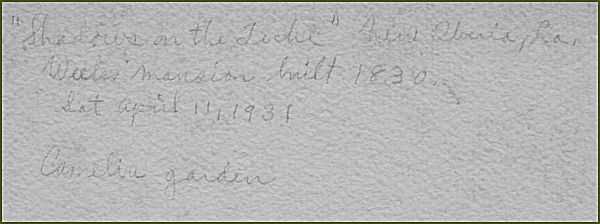 "Shadows on the Teche" New Iberia, La.
Weeks mansion built 1830.
Sat April 11, 1931
Camelia garden